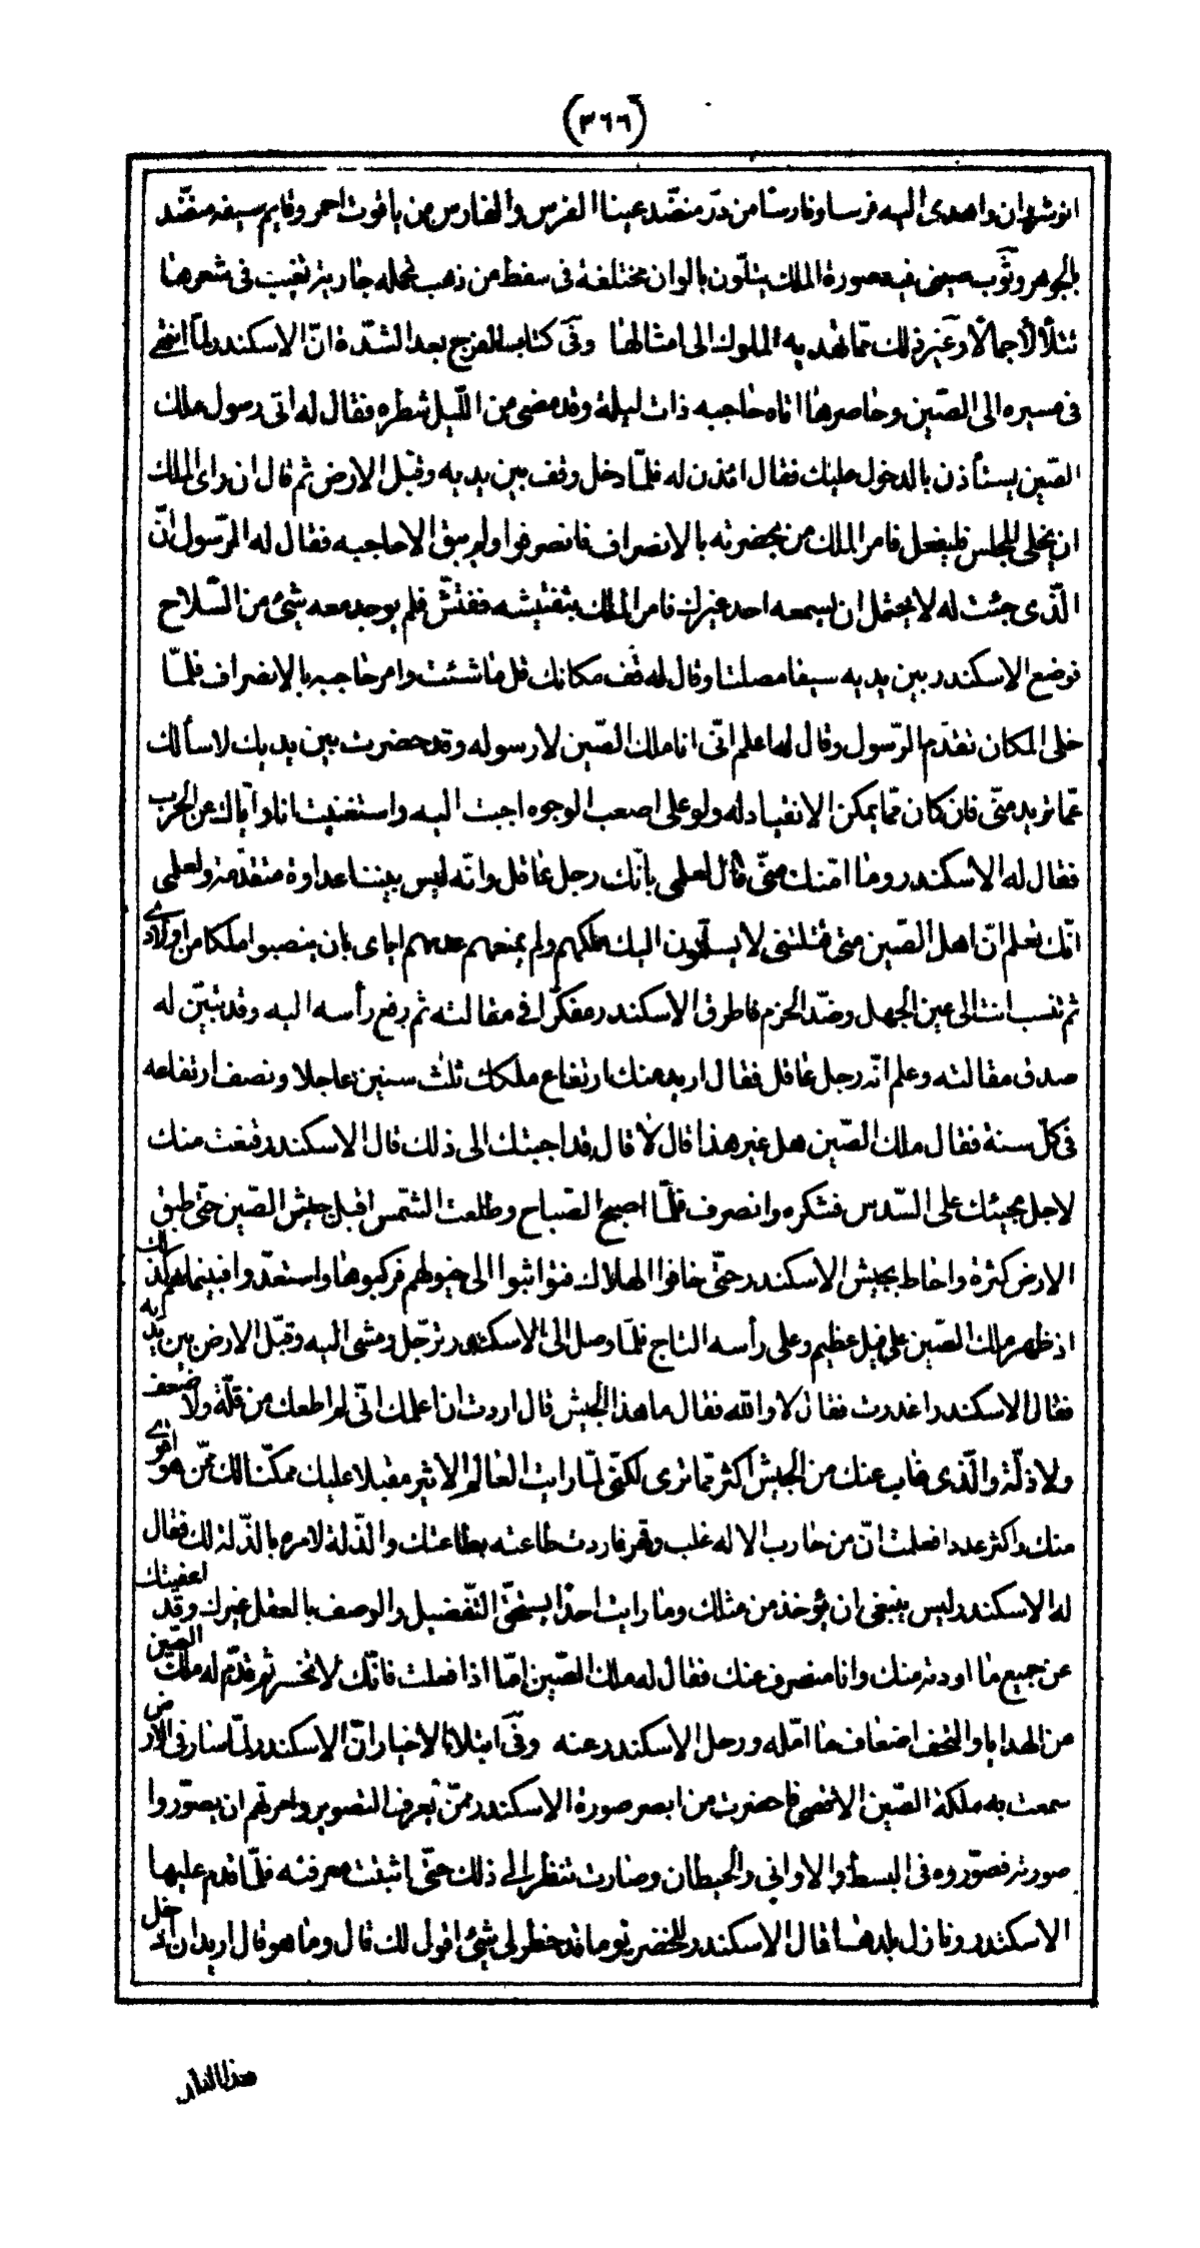 (٣٦٦)
انوشيروان واهدى اليه فرسا وفارسا من درّ منضّد عينا الفرس والفارس من ياقوت احمر وقايم سيفه منضّد
بالجوهر وثوب صينى فيه صورة الملك يتلوّن بالوان مختلفة فى سفط من ذهب تحمله جارية تغيب فى شعرها
تتلألأ جمالا وغير ذلك ممّا تهديه الملوك الى امثالها وفى كتاب الفرج بعد الشدّة انّ الاسكندر لمّا انتهى
فى مسيره الى الصّين وحاصرها اتاه حاجبه ذات ليلة وقد مضى من اللّيل شطره فقال له اتى رسول ملك
الصّين يستأذن بالدخول عليك فقال ائذن له فلمّا دخل وقف بين يديه وقبّل الارض ثم قال ان راى الملك
ان يخلى المجلس فليفعل فامر الملك من بحضرته بالانصراف فانصرفوا ولم يبق الا حاجبه فقال له الرّسول انّ
الّذى جئت له لا يحتمل ان يسمعه احد غيرك فامر الملك بتفتيشه ففتّش فلم يوجد معه شئ من السّلاح
فوضع الاسكندر بين يديه سيفا مصلتا وقال له قف مكانك قل ما شئت وامر حاجبه بالانصراف فلمّا
خلى المكان تقدّم الرّسول وقال له اعلم انّى انا ملك الصّين لا رسوله وقد حضرت بين يديك لاسألك
عمّا تريد منّى فان كان ممّا يمكن الانقياد له ولو على اصعب الوجوه اجبت اليه واستغنيت انا وايّاك عن الحرب
فقال له الاسكندر وما امّنك منّى قال لعلمى بانّك رجل عاقل وانّه ليس بيننا عداوة متقدّمة ولعلمى
انّك تعلم انّ اهل الصّين متى قتلتنى لا يسلّمون اليك ملكهم ولم يمنعهم عدمهم ايّاى بان ينصبوا ملكا من اولادى
ثم تنسب انت الى عين الجهل وضدّ الحزم فاطرق الاسكندر مفكّرا فى مقالته ثم رفع رأسه اليه وقد تبيّن له
صدق مقالته وعلم انّه رجل عاقل فقال اريد منك ارتفاع ملكك ثلث سنين عاجلا ونصف ارتفاعه
فى كلّ سنة فقال ملك الصّين هل غير هذا قال لا قال قد اجبتك الى ذلك قال الاسكندر قنعت منك
لاجل مجيئك على السّدس فشكره وانصرف فلمّا اصبح الصّباح وطلعت الشّمس اقبل جيش الصّين حتى طبق
الارض كثرة واحاط بجيش الاسكندر حتّى خافوا الهلاك فتواثبوا الى خيولهم فركبوها واستعدّوا فبينما هم كذلك
اذ ظهر ملك الصّين على فيل عظيم وعلى رأسه التاج فلمّا وصل الى الاسكندر ترجّل ومشى اليه وقبّل الارض بين يديه
فقال الاسكندر اغدرت فقال لا والله فقال ما هذا الجيش قال اردت ان اعلمك انّى لم اطعك من قلّة ولا ضعف
ولا ذلّة والّذى غاب عنك من الجيش اكثر ممّا ترى لكنّى لمّا رايت العالم الاثير مقبلا عليك ممكّنا لك عمّن هو اقوى
منك واكثر عددا فعلمت انّ من حارب الاله غلب وقهر فاردت طاعته بطاعتك والذّلة لامره بالذّلة لك فقال
له الاسكندر ليس ينبغى ان يؤخذ من مثلك وما رايت احدا يستحقّ التّفضيل والوصف بالعقل غيرك وقد اعفيتك
عن جميع ما اردته منك وانا منصرف عنك فقال له ملك الصّين امّا اذا فعلت فانّك لا تخسر ثم قدّم له ملك الصّين
من الهدايا والتحف اضعاف ما امّله ورحل الاسكندر عنه وفى ابتلاء الاخيار انّ الاسكندر لمّا سار فى الارض
سمعت به ملكة الصّين الاقصى فاحضرت من ابصر صورة الاسكندر ممّن يعرف التصوير وامرتهم ان يصوّروا
صورته فصوّروه فى البسط والاوانى والحيطان وصارت تنظر الى ذلك حتّى اثبتت معرفته فلمّا قدم عليها
الاسكندر ونازل بلدها قال الاسكندر للخضر يوما قد خطر لى شئ اقول لك قال وما هو قال اريد ان ادخل
هذا البلد